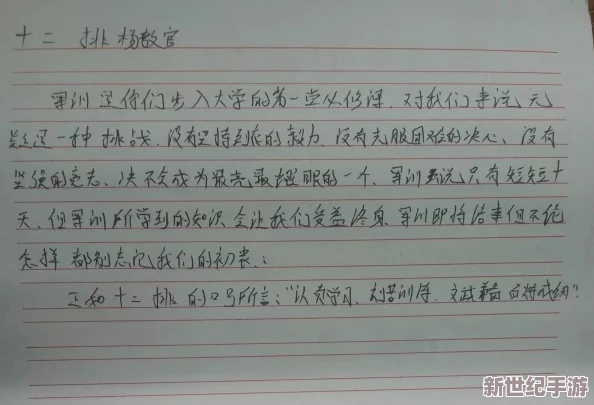 十二 排 杨教官
军训是你们步入大学的第一堂必修课,对我们来说无
疑是一种挑战,没有坚持到底的毅力,没有克服困难的决心、没有
坚强的意志,决不会成为最亮最耀眼的一个,军训虽说只有短短十
天,但军训所学到的知识会让我们受益终身,军训即将结束但不论
怎样都别忘记我们的初衷:
正如十二排的口号所言:“认真学习,刻苦训练,文武兼
新世纪手游